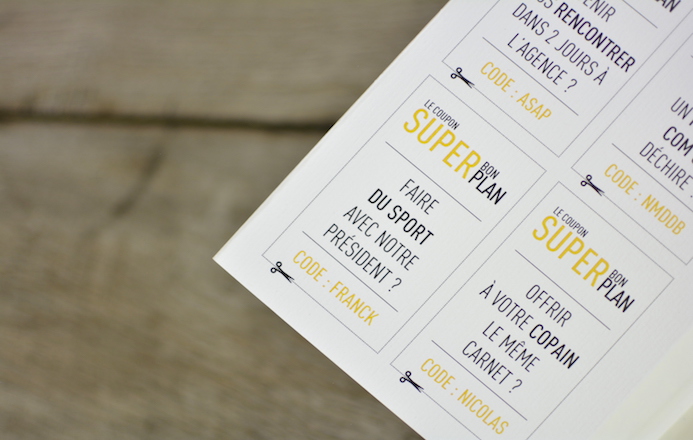 PLAN
VENIR
NOUS RENCONTRER
DANS 2 JOURS À
L'AGENCE ?
CODE : ASAP
UN
COM
DÉCHIRE
CODE : NMDDB
LE COUPON
SUPER BON
PLAN
FAIRE
DU SPORT
AVEC NOTRE
PRÉSIDENT ?
CODE : FRANCK
LE COUPON
SUPER BON
PLAN
OFFRIR
À VOTRE COPAIN
LE MÊME
CARNET ?
CODE : NICOLAS